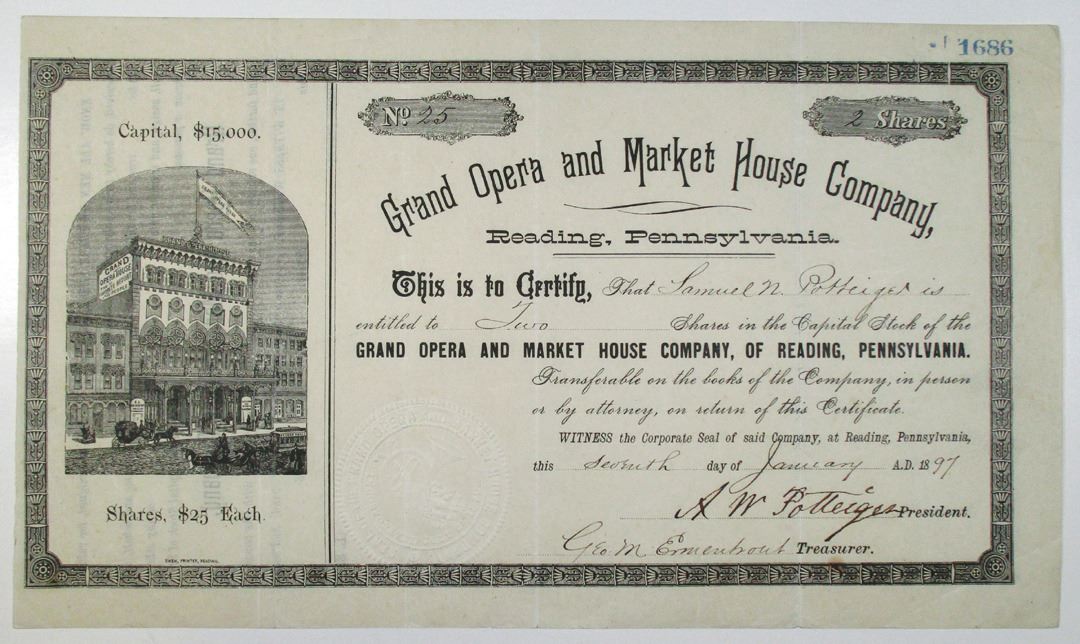 1686
Capital, $15,000.
GRAND
OPERA HOUSE
Shares, $25 Each
No 25
2 Shares
Grand Opera and Market House Company,
Reading, Pennsylvania.
This is to Certify, That Samuel N. Potteiger is
entitled to Two Shares in the Capital Stock of the
GRAND OPERA AND MARKET HOUSE COMPANY, OF READING, PENNSYLVANIA.
Transferable on the books of the Company, in person
or by attorney, on return of this Certificate.
WITNESS the Corporate Seal of said Company, at Reading, Pennsylvania,
this seventh day of January A.D. 1897
A W Potteiger President.
Geo. M. Ermentrout Treasurer.